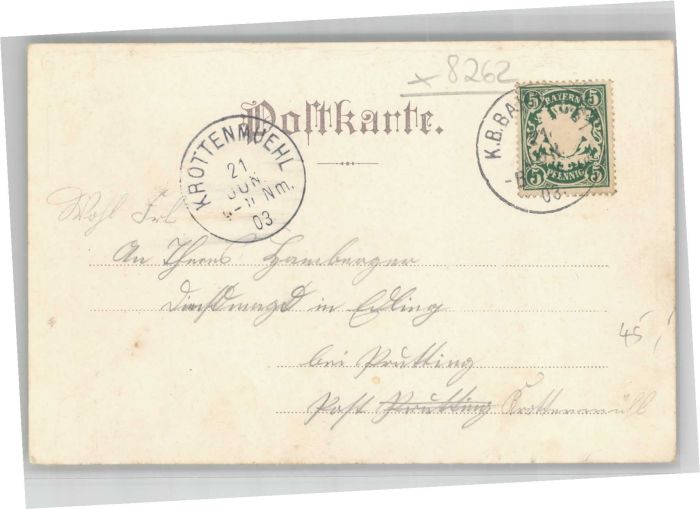 x 8262
Postkarte.
KROTTENMUEHL
21
JUN.
Nm.
03
K.B.BA
21
03
BAYERN
5 5
5 5
PFENNIG
Wohl Frl
An Theres Hamberger
Dienstmagd in Edling
bei Prutting
Post Prutting Krottenmühl
45